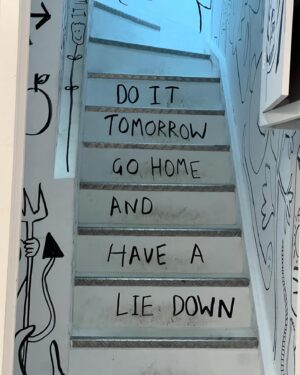 DO IT
TOMORROW
GO HOME
AND
HAVE A
LIE DOWN